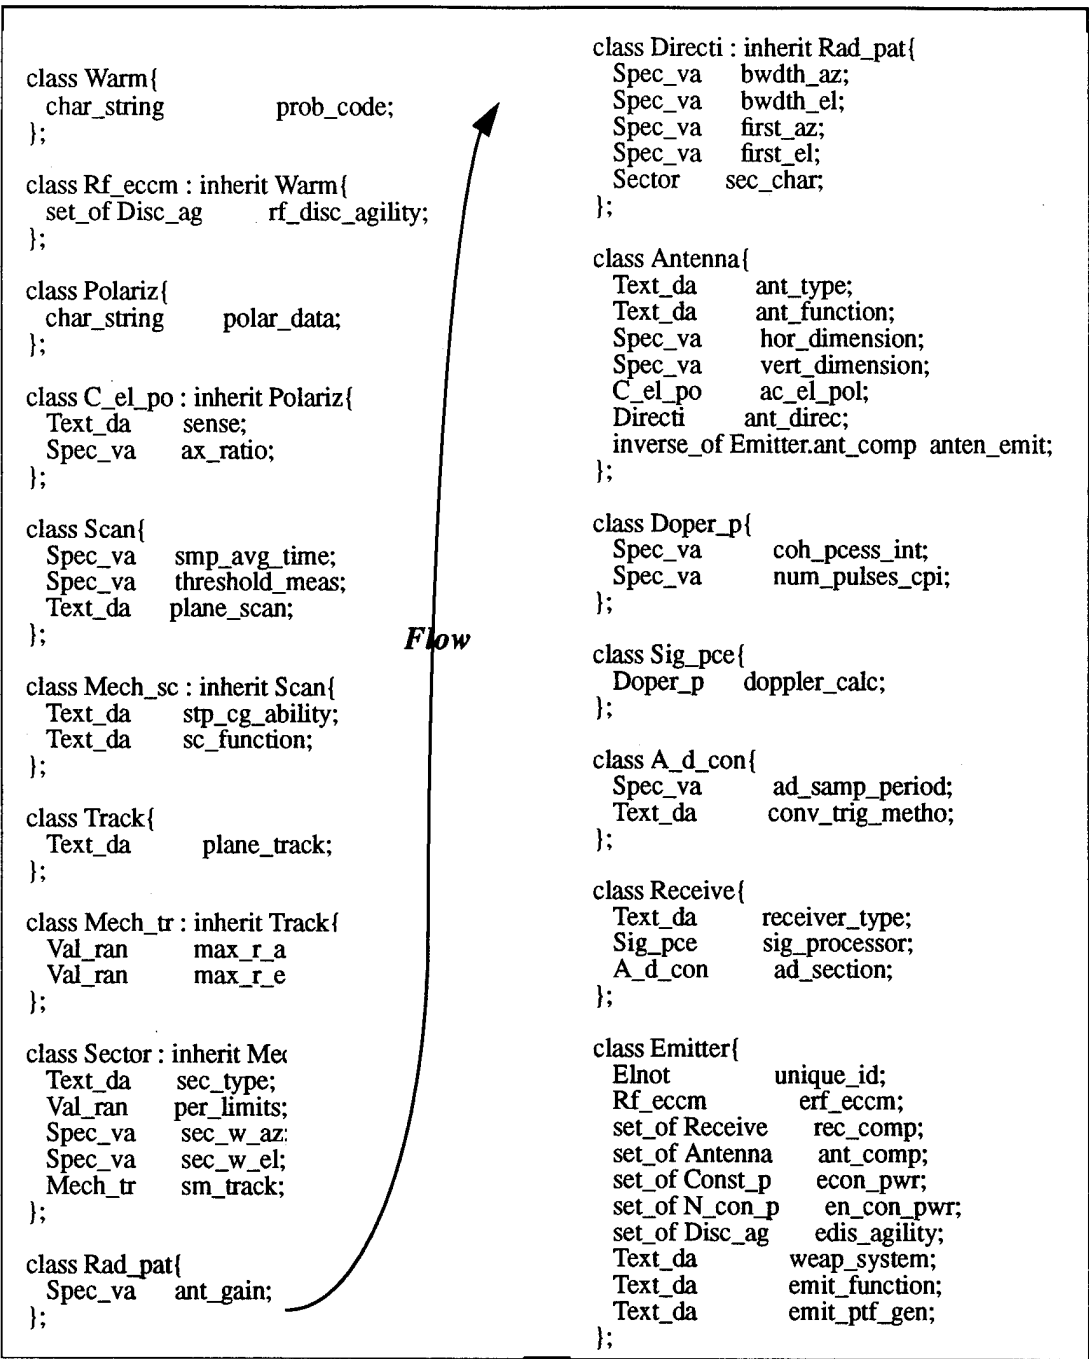 class Warm{
char_string prob_code;
};
class Rf_eccm : inherit Warm{
set_of Disc_ag rf_disc_agility;
};
class Polariz{
char_string polar_data;
};
class C_el_po : inherit Polariz{
Text_da sense;
Spec_va ax_ratio;
};
class Scan{
Spec_va smp_avg_time;
Spec_va threshold_meas;
Text_da plane_scan;
};
class Mech_sc : inherit Scan{
Text_da stp_cg_ability;
Text_da sc_function;
};
class Track{
Text_da plane_track;
};
class Mech_tr : inherit Track{
Val_ran max_r_a
Val_ran max_r_e
};
class Sector : inherit Mec
Text_da sec_type;
Val_ran per_limits;
Spec_va sec_w_az;
Spec_va sec_w_el;
Mech_tr sm_track;
};
class Rad_pat{
Spec_va ant_gain;
};
Flow
class Directi : inherit Rad_pat{
Spec_va bwdth_az;
Spec_va bwdth_el;
Spec_va first_az;
Spec_va first_el;
Sector sec_char;
};
class Antenna{
Text_da ant_type;
Text_da ant_function;
Spec_va hor_dimension;
Spec_va vert_dimension;
C_el_po ac_el_pol;
Directi ant_direc;
inverse_of Emitter.ant_comp anten_emit;
};
class Doper_p{
Spec_va coh_pcess_int;
Spec_va num_pulses_cpi;
};
class Sig_pce{
Doper_p doppler_calc;
};
class A_d_con{
Spec_va ad_samp_period;
Text_da conv_trig_metho;
};
class Receive{
Text_da receiver_type;
Sig_pce sig_processor;
A_d_con ad_section;
};
class Emitter{
Elnot unique_id;
Rf_eccm erf_eccm;
set_of Receive rec_comp;
set_of Antenna ant_comp;
set_of Const_p econ_pwr;
set_of N_con_p en_con_pwr;
set_of Disc_ag edis_agility;
Text_da weap_system;
Text_da emit_function;
Text_da emit_ptf_gen;
};